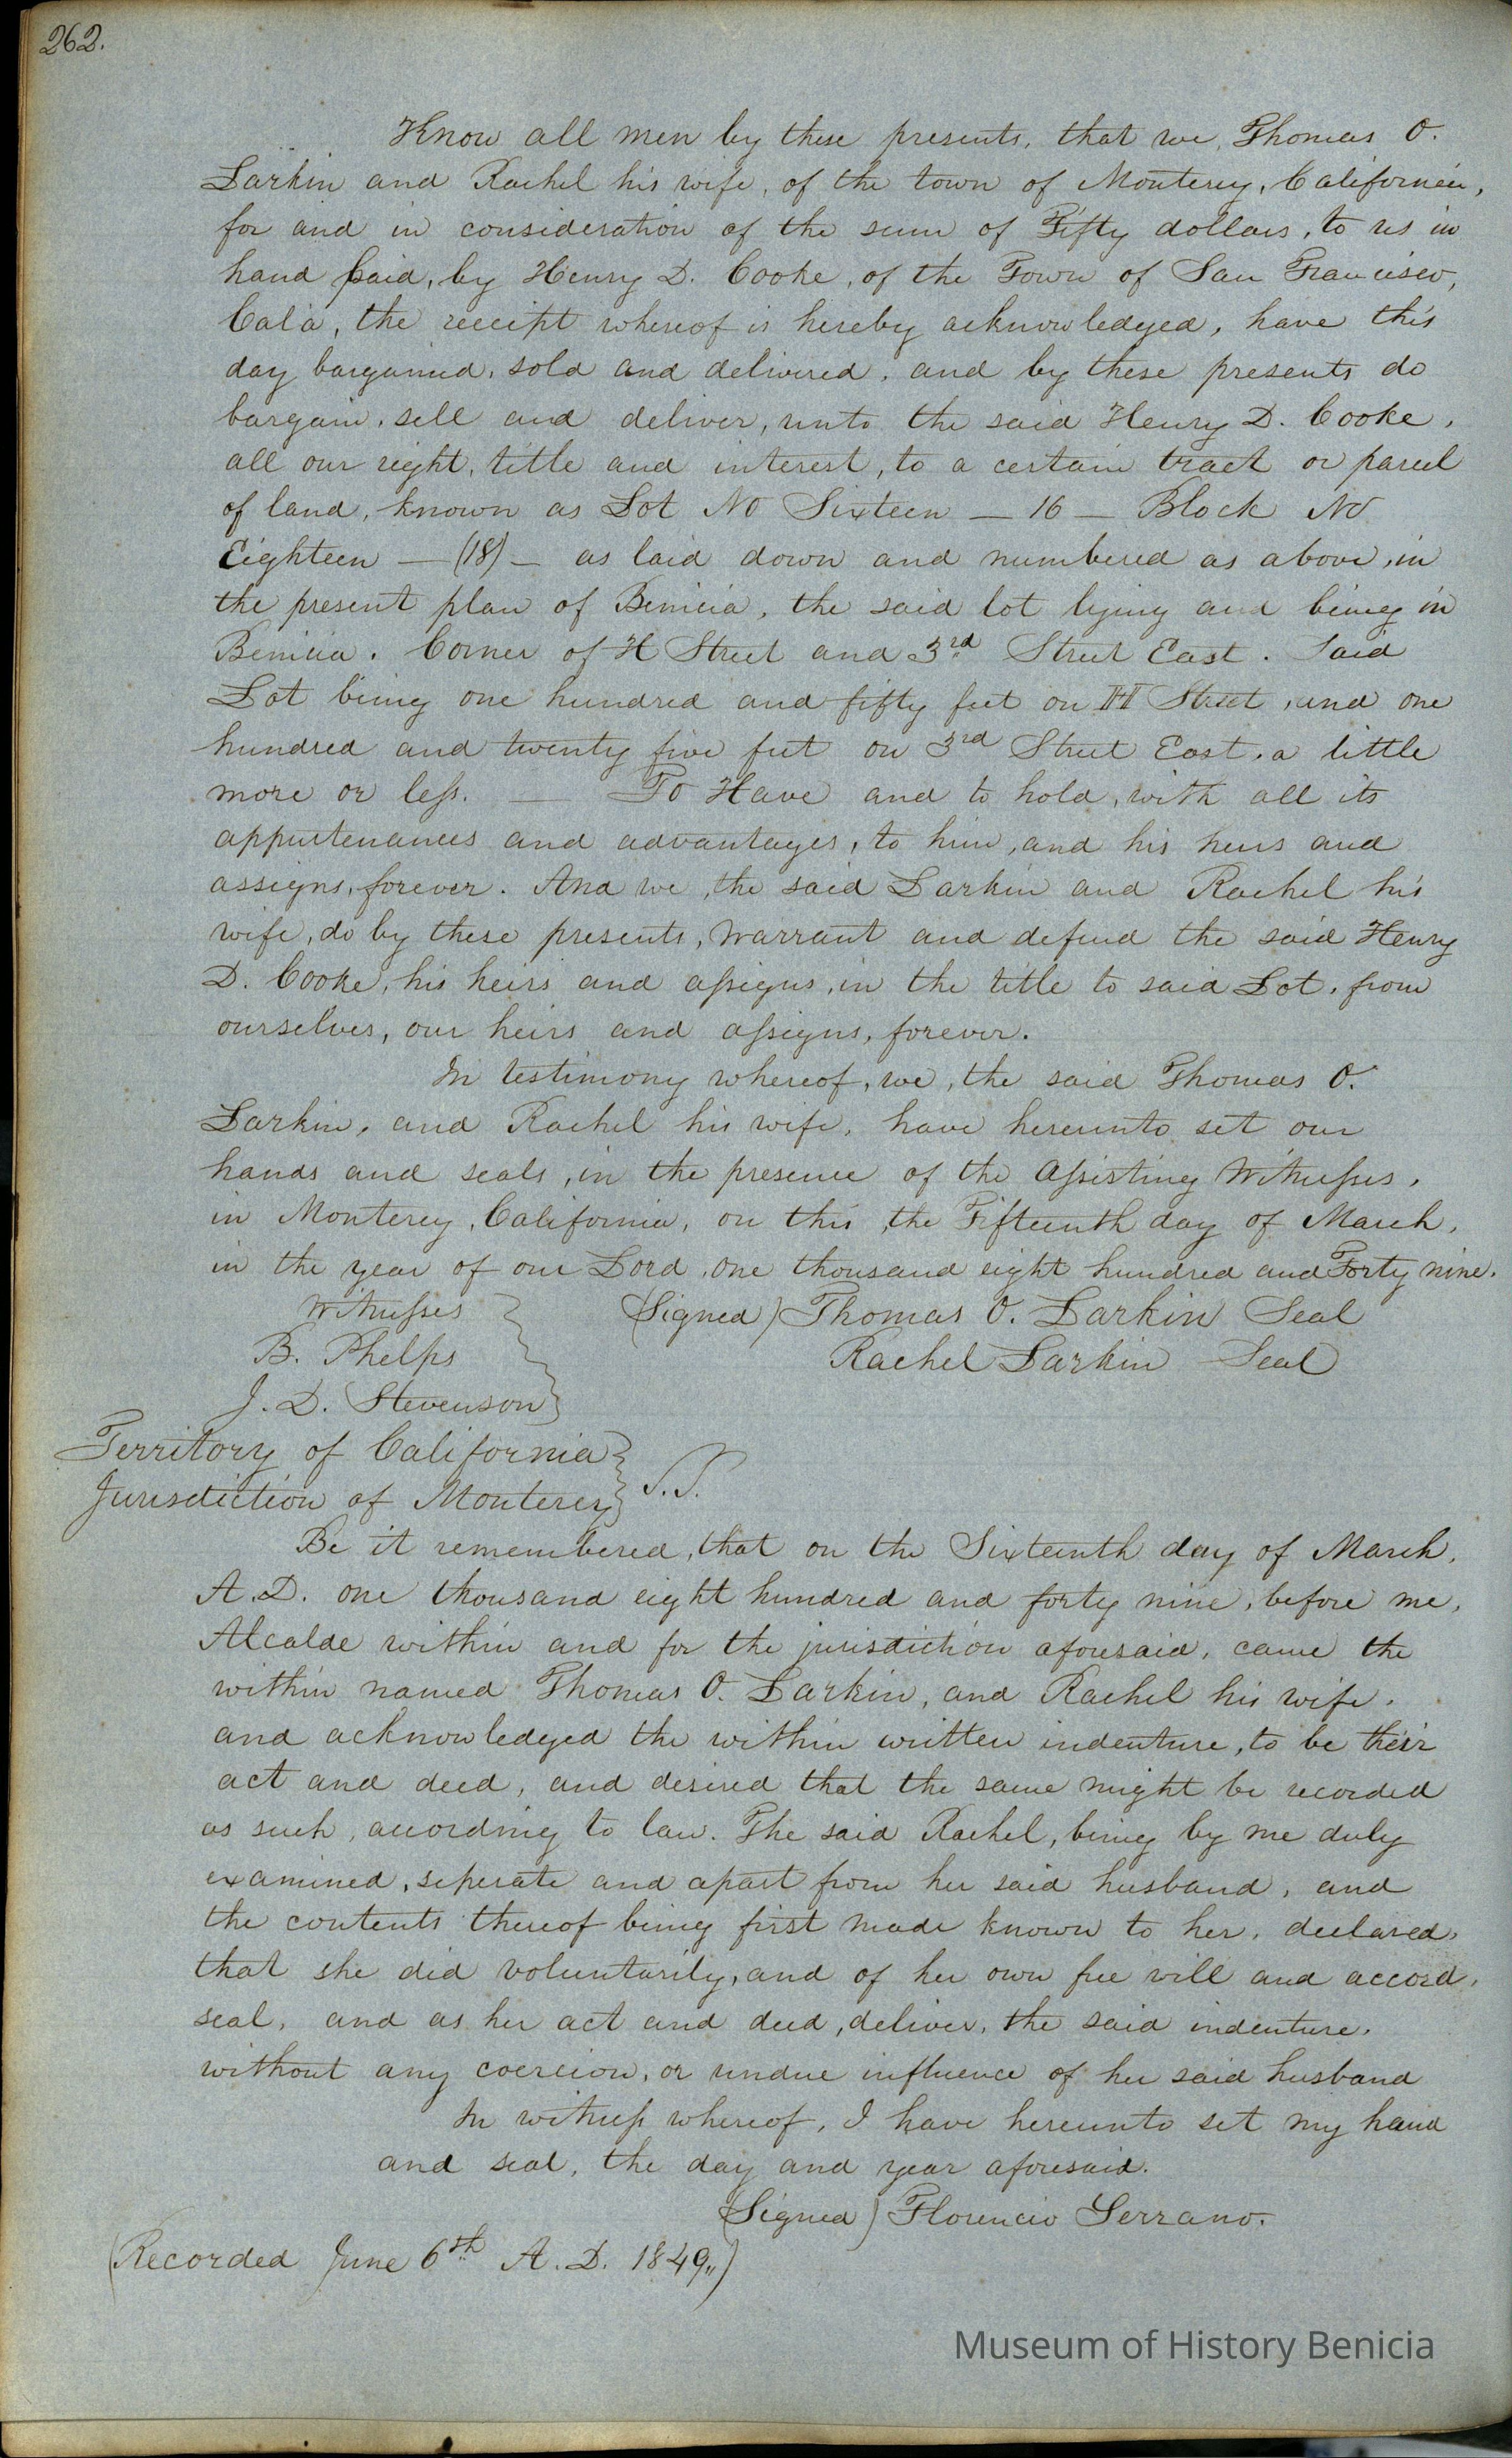 262.
Know all men by these presents, that we, Thomas O.
Larkin and Rachel his wife, of the town of Monterey, California,
for and in consideration of the sum of Fifty dollars, to us in
hand paid, by Henry D. Cooke, of the Town of San Francisco,
Cala, the receipt whereof is hereby acknowledged, have this
day bargained, sold and delivered, and by these presents do
bargain, sell and deliver, unto the said Henry D. Cooke,
all our right, title and interest, to a certain tract or parcel
of land, known as Lot No Sixteen — 16 — Block No
Eighteen — (18) — as laid down and numbered as above, in
the present plan of Benicia, the said lot lying and being in
Benicia. Corner of H Street and 3rd Street East. Said
Lot being one hundred and fifty feet on H Street, and one
hundred and twenty five feet on 3rd Street East, a little
more or less. — To Have and to hold, with all its
appurtenances and advantages, to him, and his heirs and
assigns, forever. And we, the said Larkin and Rachel his
wife, do by these presents, warrant and defend the said Henry
D. Cooke, his heirs and assigns, in the title to said Lot, from
ourselves, our heirs and assigns, forever.
In testimony whereof, we, the said Thomas O.
Larkin, and Rachel his wife, have hereunto set our
hands and seals, in the presence of the Assisting Witnesses,
in Monterey, California, on this, the Fifteenth day of March,
in the year of our Lord, one thousand eight hundred and Forty nine.
Witnesses (Signed) Thomas O. Larkin Seal
B. Phelps Rachel Larkin Seal
J. D. Stevenson
Territory of California
Jurisdiction of Monterey S.S.
Be it remembered, that on the Sixteenth day of March,
A.D. one thousand eight hundred and forty nine, before me,
Alcalde within and for the jurisdiction aforesaid, came the
within named Thomas O. Larkin, and Rachel his wife,
and acknowledged the within written indenture, to be their
act and deed, and desired that the same might be recorded
as such, according to law. The said Rachel, being by me duly
examined, seperate and apart from her said husband, and
the contents thereof being first made known to her, declared,
that she did voluntarily, and of her own free will and accord,
seal, and as her act and deed, deliver, the said indenture,
without any coercion, or undue influence of her said husband
In witness whereof, I have hereunto set my hand
and seal, the day and year aforesaid.
(Signed) Florencio Serrano.
(Recorded June 6th A.D. 1849,,)
Museum of History Benicia